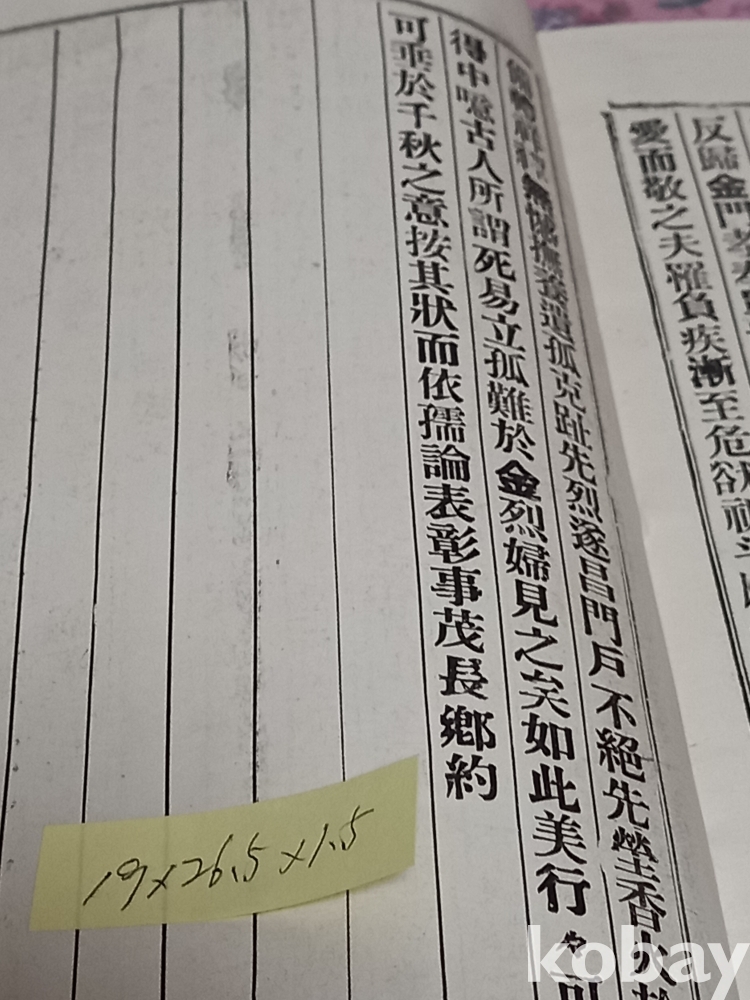 反歸金門孝奉
愛而敬之夫罹負疾漸至危欲祝斗
無憾撫養遺孤克趾先烈遂昌門戶不絕先塋香火
得中噫古人所謂死易立孤難於金烈婦見之矣如此美行
可垂於千秋之意按其狀而依孺論表彰事茂長鄉約
19×26.5×1.5
kobay